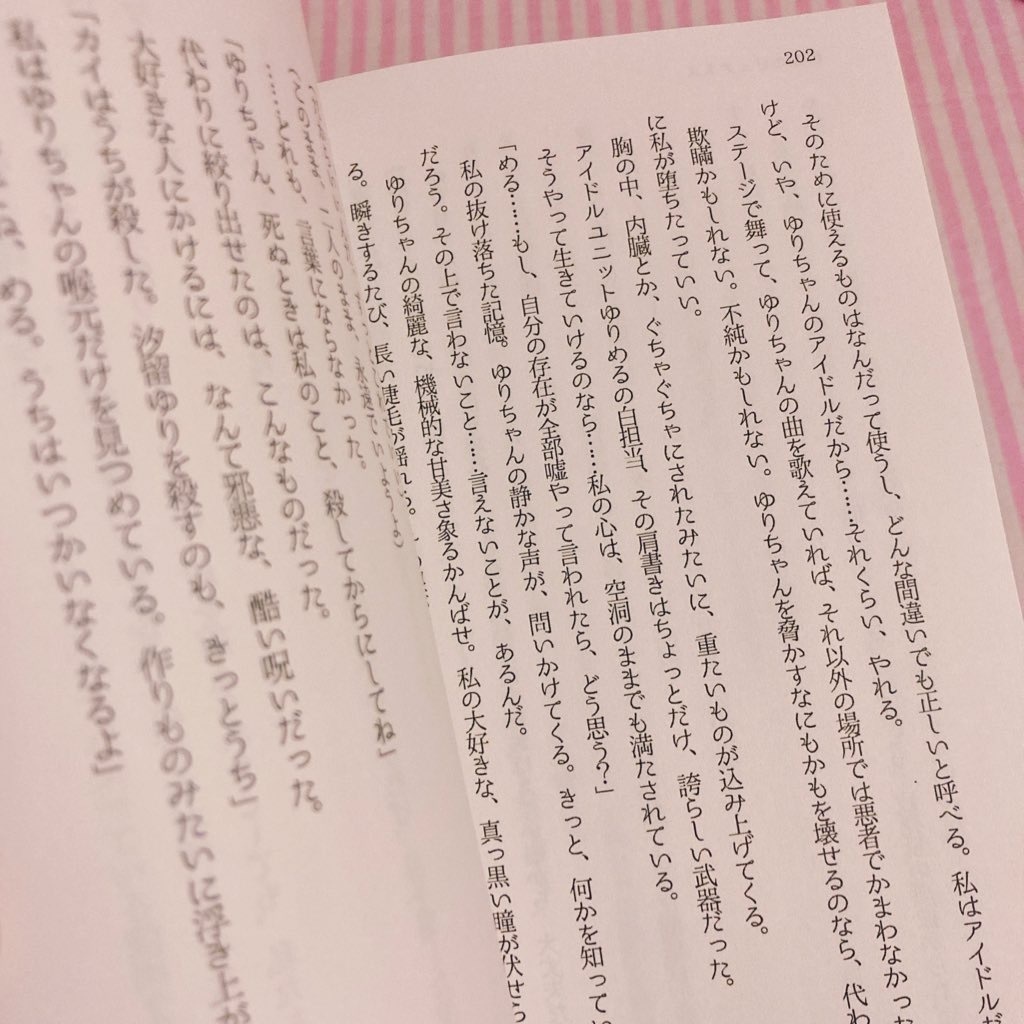 202
そのために使えるものはなんだって使うし、どんな間違いでも正しいと呼べる。私はアイドルだ
けど、いや、ゆりちゃんのアイドルだから……それくらい、やれる。
ステージで舞って、ゆりちゃんの曲を歌えていれば、それ以外の場所では悪者でかまわなかった
欺瞞かもしれない。不純かもしれない。ゆりちゃんを脅かすなにもかもを壊せるのなら、代わ
に私が堕ちたっていい。
胸の中、内臓とか、ぐちゃぐちゃにされたみたいに、重たいものが込み上げてくる。
アイドルユニットゆりめるの白担当、その肩書きはちょっとだけ、誇らしい武器だった。
そうやって生きていけるのなら……私の心は、空洞のままでも満たされている。
「める……もし、自分の存在が全部嘘やって言われたら、どう思う？」
私の抜け落ちた記憶。ゆりちゃんの静かな声が、問いかけてくる。きっと、何かを知ってい
だろう。その上で言わないこと……言えないことが、あるんだ。
ゆりちゃんの綺麗な、機械的な甘美さ象るかんばせ。私の大好きな、真っ黒い瞳が伏せら
る。瞬きするたび、長い睫毛が揺れる。
このまま、二人のまま、永遠でいようよ。
……どれも、言葉にならなかった。
「ゆりちゃん、死ぬときは私のこと、殺してからにしてね」
代わりに絞り出せたのは、こんなものだった。
大好きな人にかけるには、なんて邪悪な、酷い呪いだった。
「カイはうちが殺した。汐留ゆりを殺すのも、きっとうち」
私はゆりちゃんの喉元だけを見つめている。作りものみたいに浮き上が
ね、める。うちはいつかいなくなるよ」